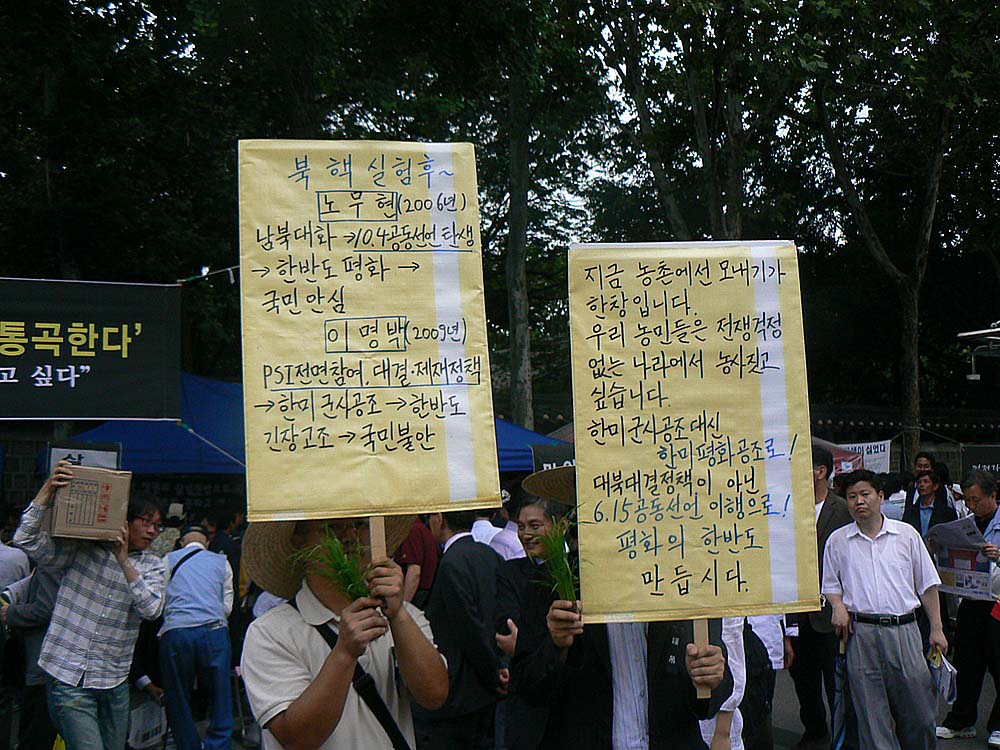 북 핵 실험후~
노무현(2006년)
남북대화→10.4공동선언탄생
→한반도평화→
국민안심
이명박(2009년)
PSI전면참여, 대결·제재정책
→한미군사공조→한반도
긴장고조→국민불안
지금 농촌에선 모내기가
한창입니다.
우리 농민들은 전쟁걱정
없는 나라에서 농사짓고
싶습니다.
한미군사공조대신
한미평화공조로!
대북대결정책이 아닌
6.15공동선언 이행으로!
평화의 한반도
만듭시다.
통곡한다’
고 싶다”